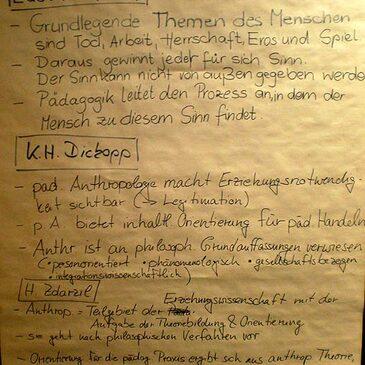 - Grundlegende Themen des Menschen
sind Tod, Arbeit, Herrschaft, Eros und Spiel
- Daraus gewinnt jeder für sich Sinn.
Der Sinn kann nicht von außen gegeben werde
- Pädagogik leitet den Prozess an, in dem der
Mensch zu diesem Sinn findet
K.H. Dickopp
- päd. Anthropologie macht Erziehungsnotwendig-
keit sichtbar (→ Legitimation)
- p. A. bietet inhaltl. Orientierung für päd. Handeln
- Anthr ist an philosoph. Grundauffassungen verwiesen
(• personorientiert • phänomenologisch • gesellschaftsbezogen
• integrationswissenschaftlich)
H. Zdarzil
- Anthrop. = Teilgebiet der Erziehungswissenschaft mit der
Aufgabe der Theoriebildung & Orientierung
- sie geht nach philosophischen Verfahren vor
- Orientierung für die pädag. Praxis ergibt sich aus anthrop Theorie,